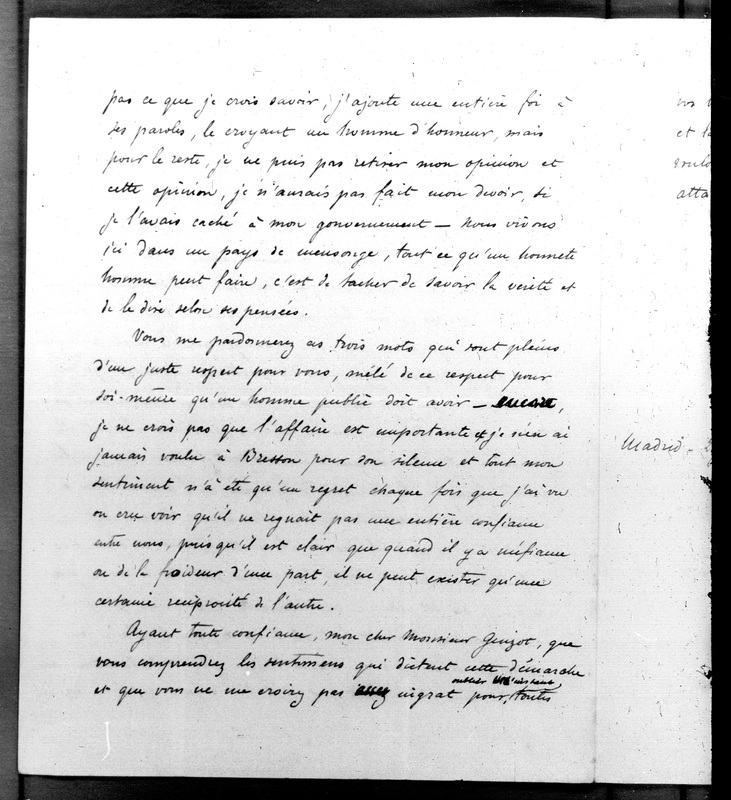 pas ce que je crois savoir, j'ajoute une entière foi à
ses paroles, le croyant un homme d'honneur, mais
pour le reste, je ne puis pas retirer mon opinion et
cette opinion, je n'aurais pas fait mon devoir, si
je l'avais caché à mon gouvernement — Nous vivons
ici dans un pays de mensonge, tout ce qu'un honnete
homme peut faire, c'est de tacher de savoir la verité et
de le dire selon ses pensées.
Vous me pardonnerez ces trois mots qui sont pleins
d'un juste respect pour vous, mélé de ce respect pour
soi-même qu'un homme public doit avoir —
je ne crois pas que l'affaire est importante et je n'en ai
jamais voulu à Bresson pour son silence et tout mon
sentiment n'a été qu'un regret chaque fois que j'ai vu
ou cru voir qu'il ne regnait pas une entière confiance
entre nous, puisqu'il est clair que quand il y a méfiance
ou de la froideur d'une part, il ne peut exister qu'une
certaine reciprocité de l'autre.
Ayant toute confiance, mon cher Monsieur Guizot, que
vous comprendrez les sentimens qui dictent cette démarche
et que vous ne me croirez pas ingrat pour toutes
vos
et
Madrid